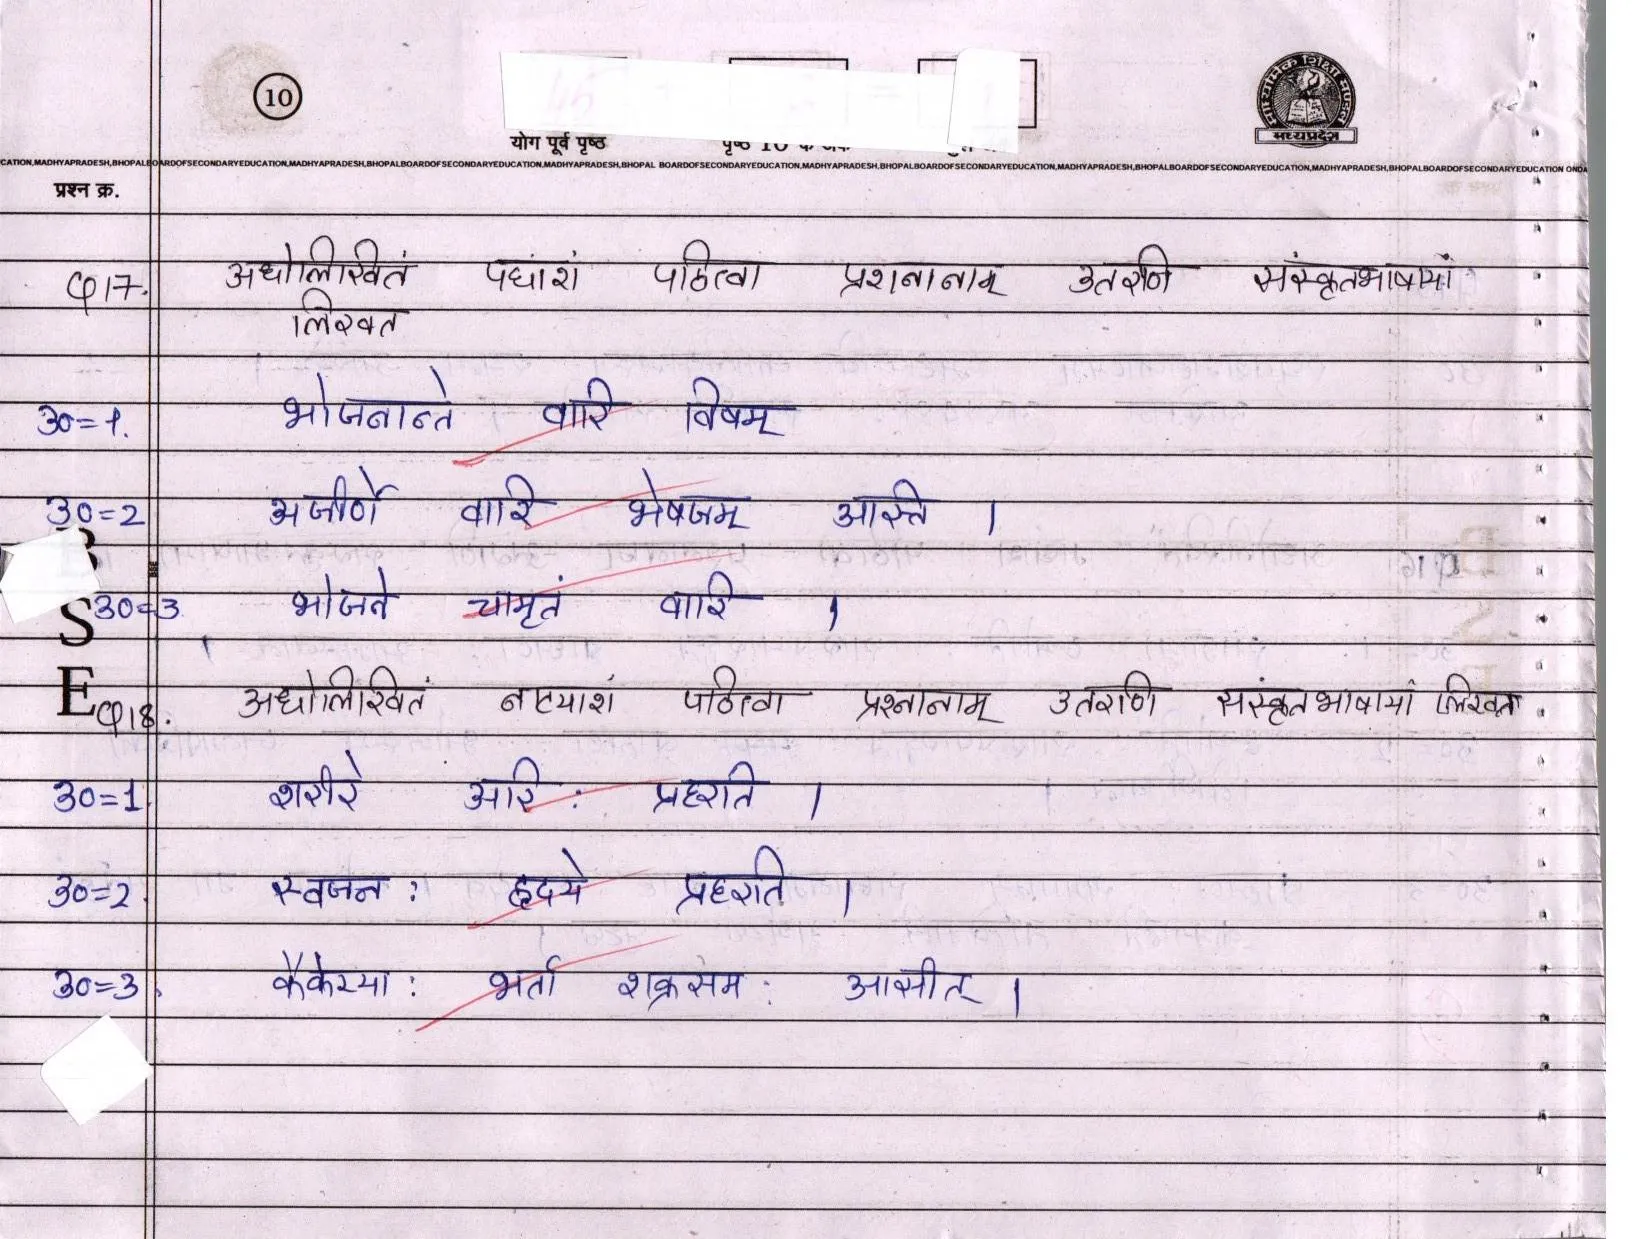 10
योग पूर्व पृष्ठ
माध्यमिक शिक्षा मण्डल
मध्यप्रदेश
CATION,MADHYAPRADESH,BHOPALBOARDOFSECONDARYEDUCATION,MADHYAPRADESH,BHOPALBOARDOFSECONDARYEDUCATION,MADHYAPRADESH,BHOPAL BOARDOFSECONDARYEDUCATION,MADHYAPRADESH,BHOPALBOARDOFSECONDARYEDUCATION,MADHYAPRADESH,BHOPALBOARDOFSECONDARYEDUCATION ONDA
प्रश्न क्र.
Q17. अधोलिखितं पधांशं पठित्वा प्रशनानाम् उतराणि संस्कृतभाषायां
लिखत
उ०=1. भोजनान्ते वारि विषम्
उ०=2 अजीर्णे वारि भेषजम् आस्ति ।
उ०=3 भोजने चामृतं वारि ।
S
E
Q18. अधोलिखितं नाट्याशं पठित्वा प्रश्नानाम् उतराणि संस्कृतभाषायां लिखत
उ०=1 शरीरे अरि: प्रहरति ।
उ०=2. स्वजन: हृदये प्रहरति ।
उ०=3. कैकेय्या: भर्ता शक्रसम: आसीत् ।